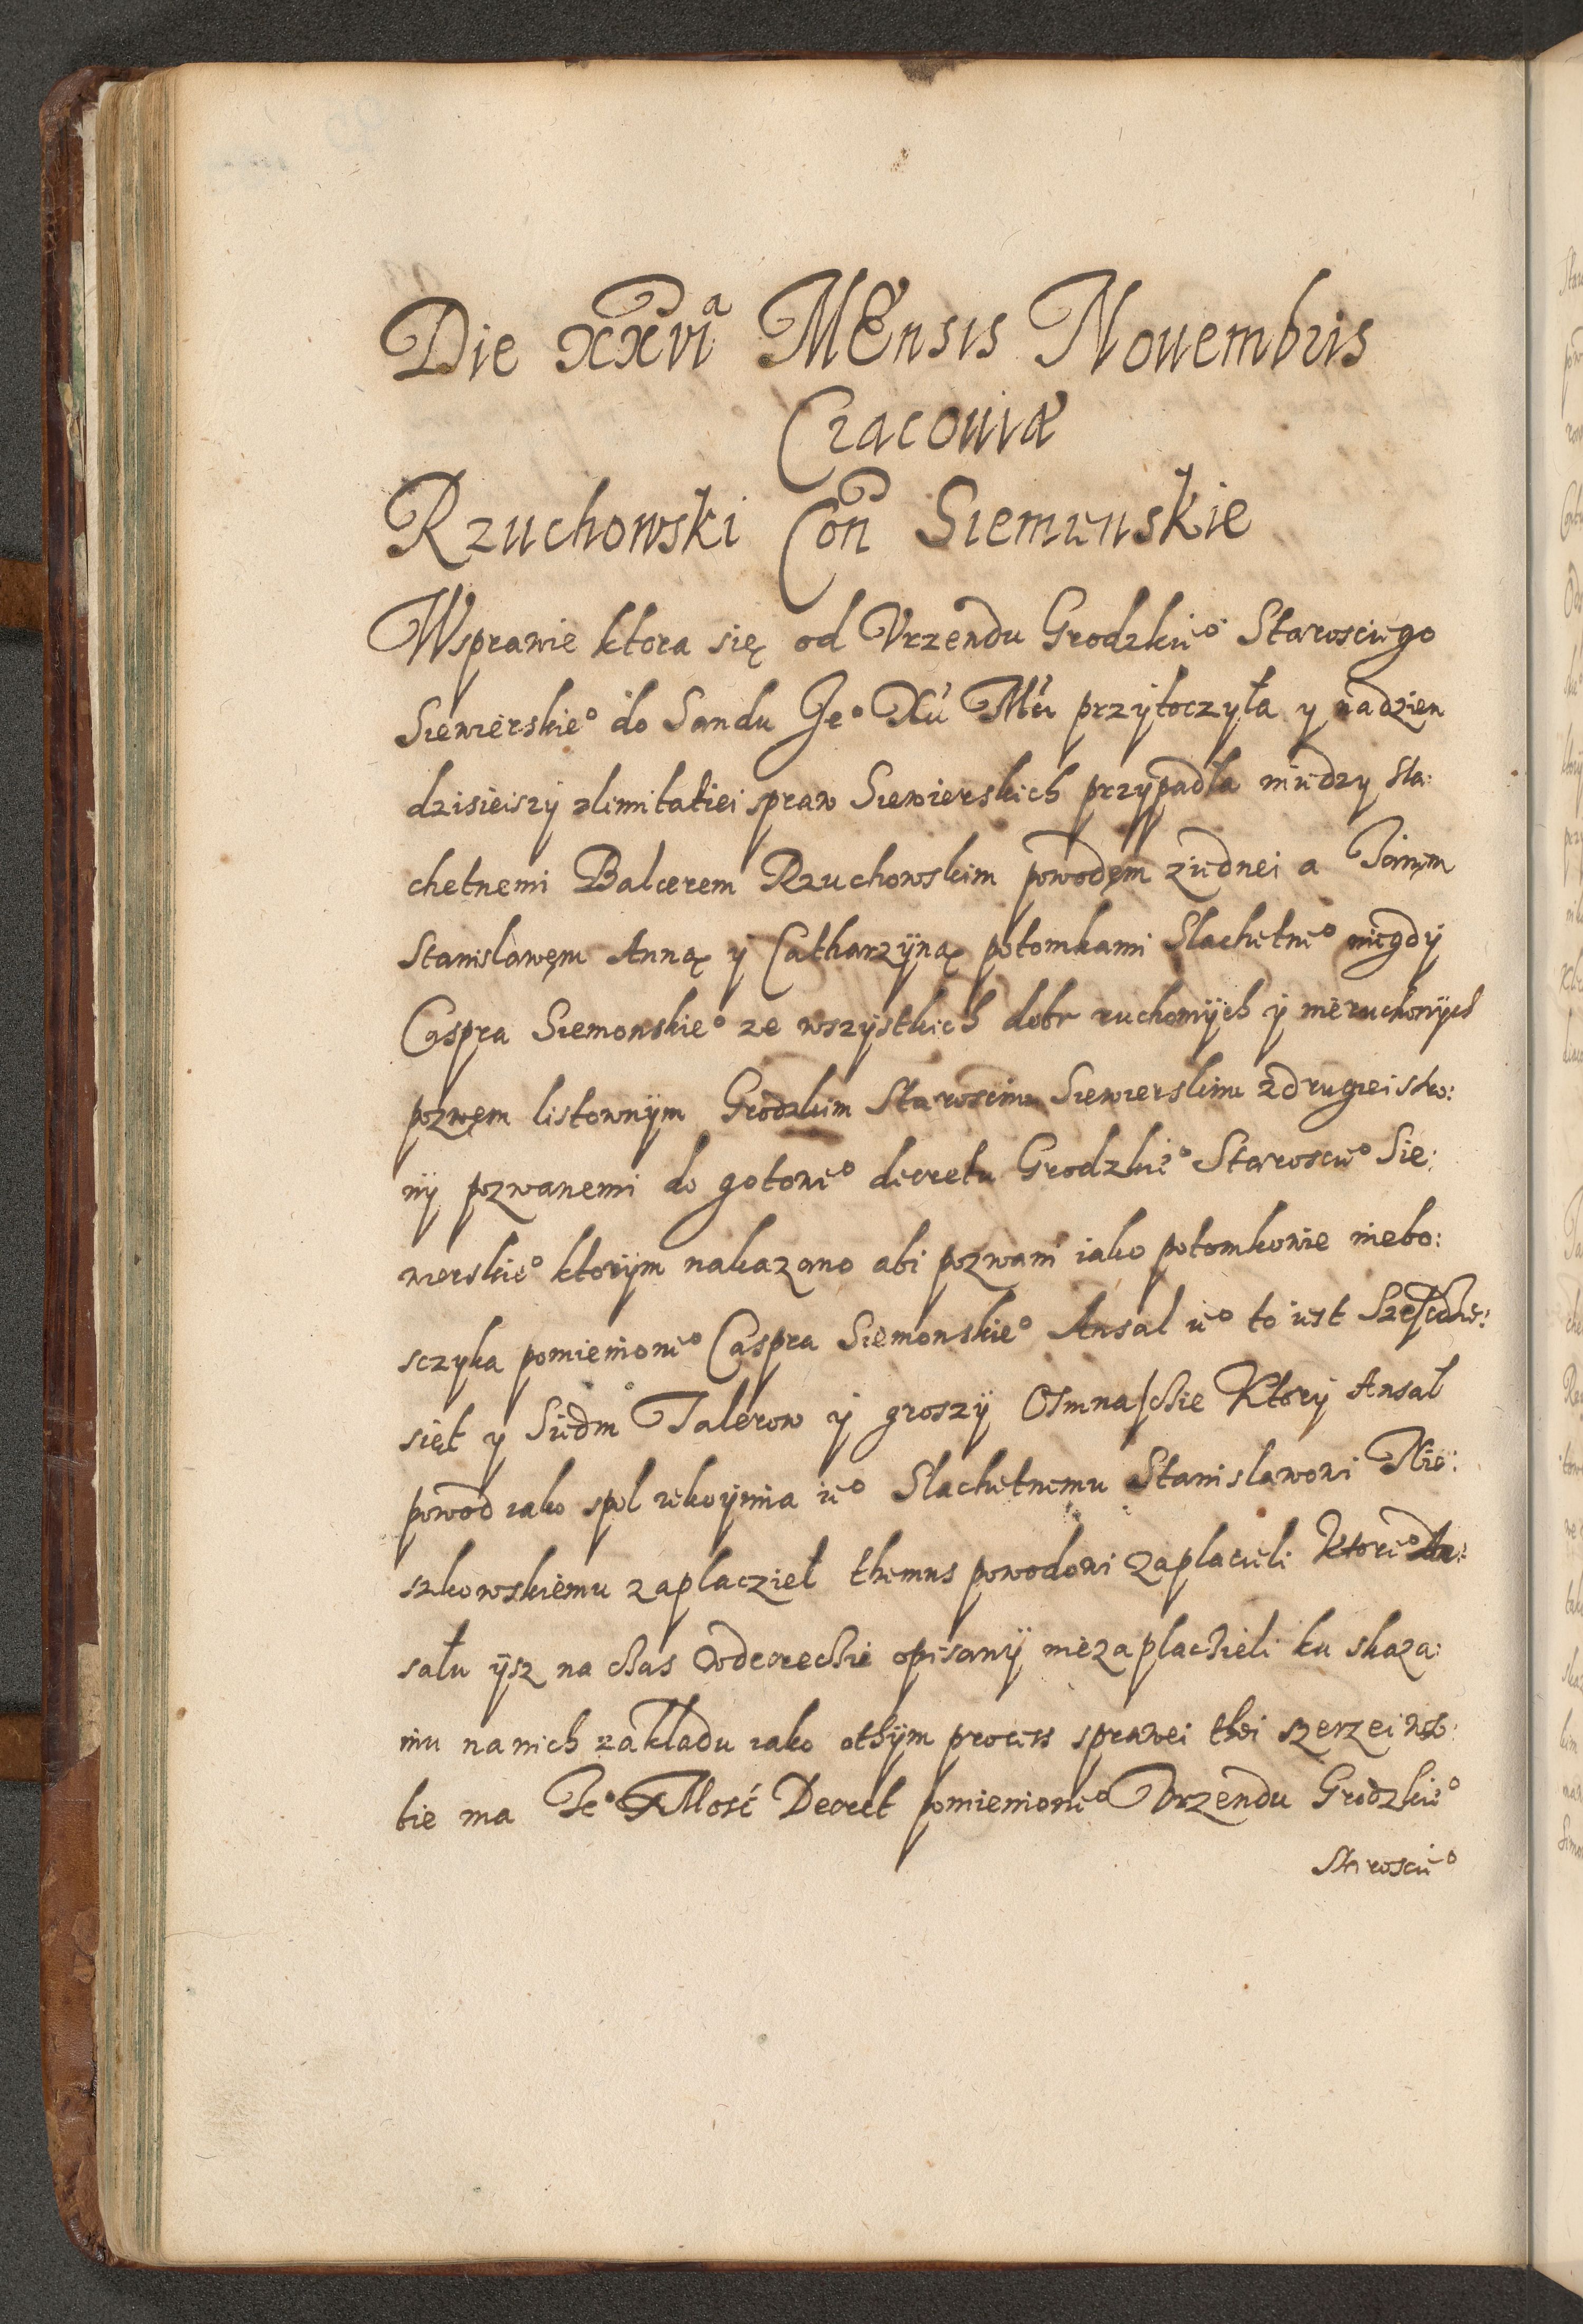 Die xxvi<sup>a</sup> MEnsis Nouembris
Cracouiæ
Rzuchowski Con Siemienskie
Wsprawie ktora się od Vrzendu Grodzkie° Starosciego
Siewierskie° do Sandu Je° Xii Mći przÿtoczyła y nadzien
dzisieiszÿ zlimitatiei spraw Siewierskich przÿpadła miedzy sla:
chetnemi Balcerem Rzuchowskim powodęm ziednei a Janem
Stanisławęm Anną ÿ Catharzÿną potomkami Slachetne° niegdÿ
Caspra Siemonskie° ze wszÿstkich dobr ruchomÿch ÿ nieruchomÿch
pozwęm listownÿm Grodzkim Staroscim Siewierskim zdrugiei stro:
nÿ pozwanemi do gotowe° decretu Grodzkie° Staroscie° Sie:
wierskie° ktorÿm nakazano abi pozwani iako potomkowie niebo:
sczyka pomienione° Caspra Siemonskie° Ansal ie° to iest Szescdzie:
siet y Siedm Talerow ÿ groszÿ Osmnascie Ktorÿ Ansal
powod iako spol rekoÿmia ie° Slachetnemu Stanislawowi Nie:
szkowskiemu zaplacziel themus powodowi zaplacieli Ktore° An:
sału ÿsz na czas wdecrecie opisanÿ niezaplaczieli ku skaza:
niu nanich zakładu iako othÿm process sprawei thei szerzei wso:
bie ma Je° X Mosć Decret pomienione° Vrzendu Grodzkie°
Staroscie°